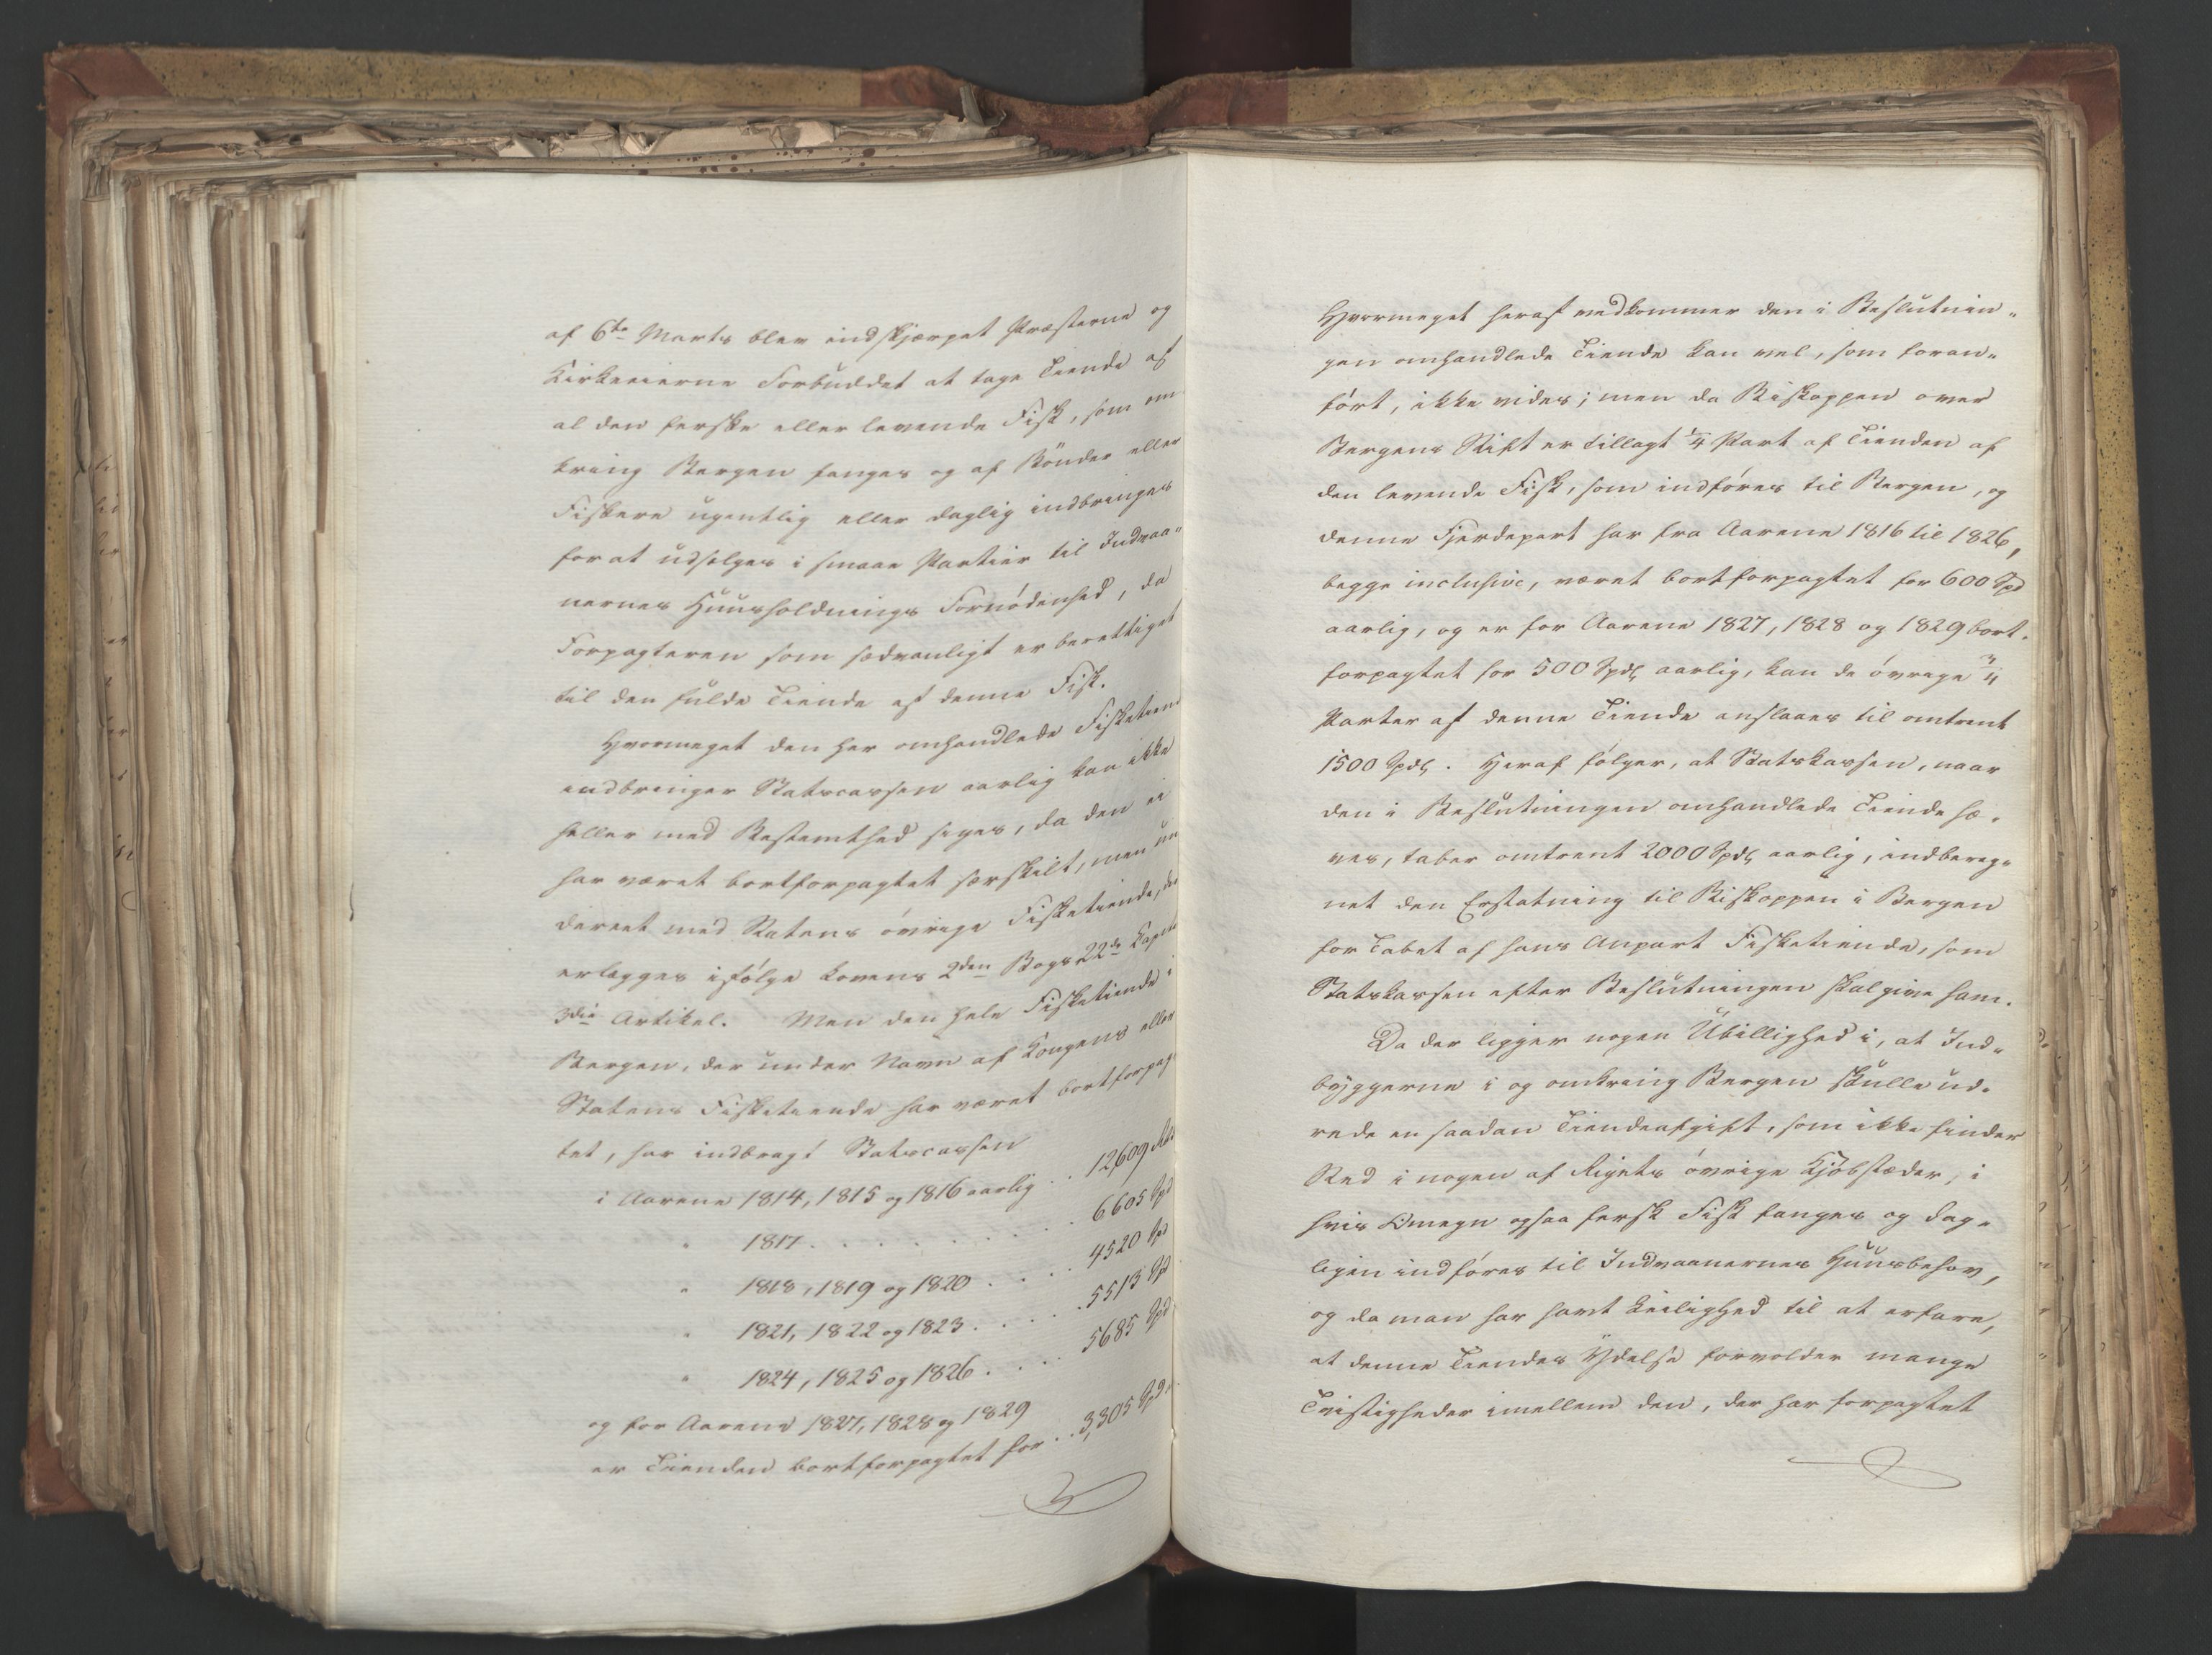 af 6te Marts blev indskjærpet Præsterne og
Kirkeeierne Forbuddet at tage Tiende af
al den ferske eller levende Fisk, som om
kring Bergen fanges og af Bönder eller
Fiskere ugentlig eller daglig indbringes
for at udsælges i smaae Partier til Indvaa-
nernes Huusholdnings Fornödenhed, da
Forpagteren som sædvanligt er berettiget
til den fulde Tiende af denne Fisk.
Hvormeget den her omhandlede Fisketiend
indbringer Statscassen aarlig kan ikke
heller med Bestemthed siges, da den ei
har været bortforpagtet særskilt, men un
dereet med Statens övrige Fisketiende, der
erlægges ifölge Lovens 2den Bogs 22de Capitels
3die Artikel. Men den hele Fisketiende i
Bergen, der under Navn af Kongens eller
Statens Fisketiende har været bortforpag-
tet, har indbragt Statscassen
i Aarene 1814, 1815 og 1816 aarlig . . 12,609 Rbd
" 1817 . . . . . . . . . 6605 Spd
" 1818, 1819 og 1820 . . . . 4520 Spd
" 1821, 1822 og 1823 . . . . 5513 Spd
" 1824, 1825 og 1826 . . . . 5685 Spd
og for Aarene 1827, 1828 og 1829
er Tienden bortforpagtet for . . 3,305 Spd.
Hvormeget heraf vedkommer den i Beslutnin-
gen omhandlede Tiende kan vel, som foran-
fört, ikke vides; men da Biskoppen over
Bergens Stift er tillagt 1/4 Part af Tienden af
den levende Fisk, som indföres til Bergen, og
denne Fjerdepart har fra Aarene 1816 til 1826,
begge inclusive, været bortforpagtet for 600 Spd
aarlig, og er for Aarene 1827, 1828 og 1829 bort-
forpagtet for 500 Spd. aarlig, kan de övrige 3/4
Parter af denne Tiende anslaaes til omtrent
1500 Spd. Heraf fölger, at Statskassen, naar
den i Beslutningen omhandlede Tiende hæ-
ves, taber omtrent 2000 Spd. aarlig, indbereg-
net den Erstatning til Biskoppen i Bergen
for Tabet af hans Anpart Fisketiende, som
Statskassen efter Beslutningen skal give ham.
Da der ligger nogen Ubillighed i, at Ind-
byggerne i og omkring Bergen skulle ud-
rede en saadan Tiendeafgift, som ikke finder
Sted i nogen af Rigets övrige Kjöbstæder, i
hvis Omegn ogsaa fersk Fisk fanges og dag-
ligen indföres til Indvaanernes Huusbehov,
og da man har havt Leilighed til at erfare,
at denne Tiendes Ydelse forvolder mange
Tvistigheder imellem den, der har forpagtet